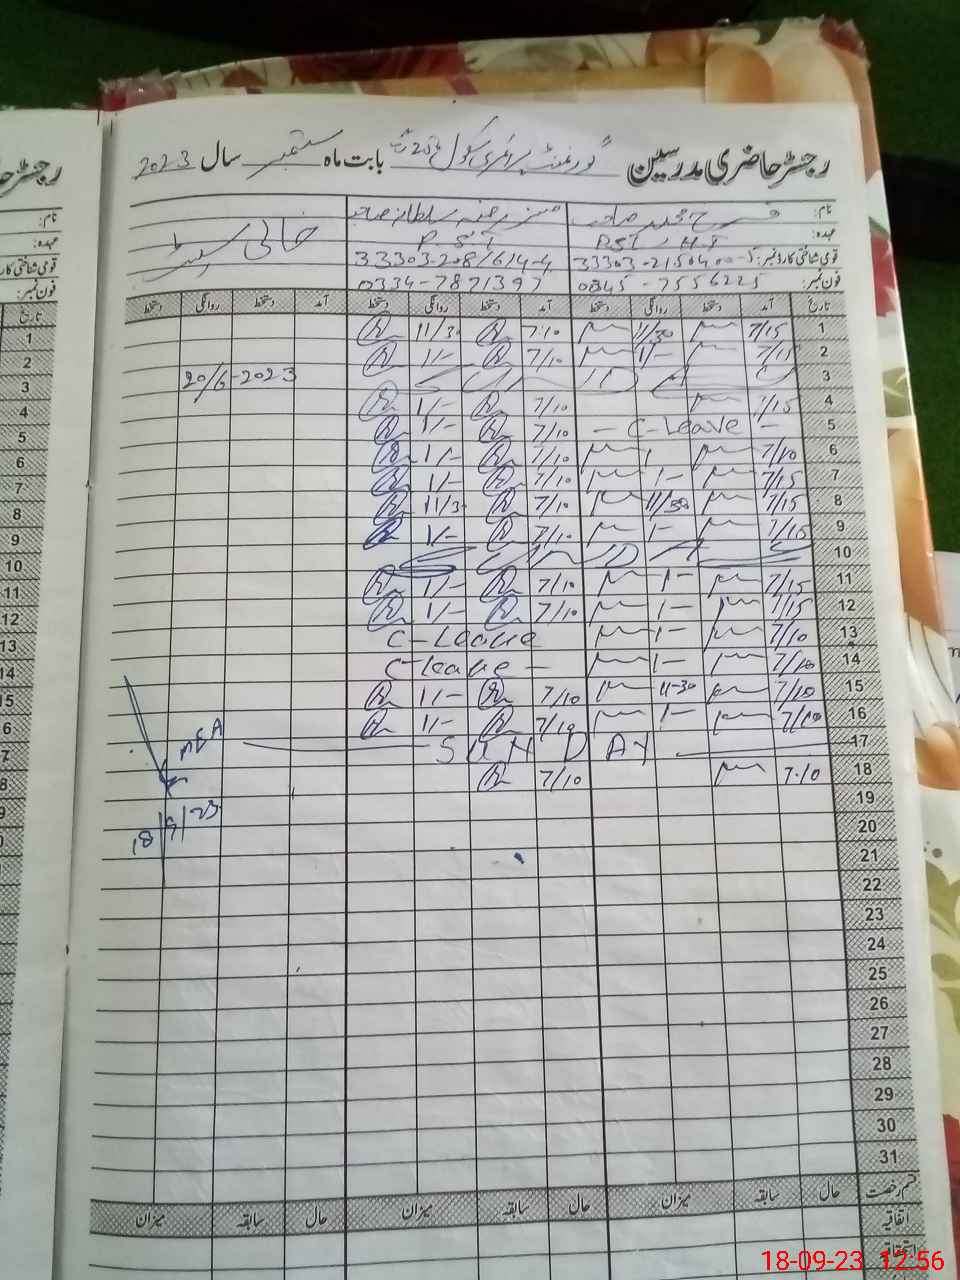 رجسٹر حاضری مدرسین گورنمنٹ پرائمری سکول بابت ماہ ستمبر سال 2023
نام: فرح مسز رضیہ سلطانہ صاحبہ خالی سیٹ
عہدہ: PST
قومی شناختی کارڈ نمبر: 33303-2150400-5 33303-2081614-4
فون نمبر: 0345-7556225 0334-7871397
تاریخ آمد دستخط روانگی دستخط آمد دستخط روانگی دستخط آمد دستخط روانگی دستخط
1 7/15 11/30 7:10 11/30
2 7/15 1/- 7/10 1/-
3 20/6-2023
4 7/15 7/10 1/-
5 - C-Leave - 7/10 1/-
6 7/10 7/10 1/-
7 7/15 1- 7/10 1/-
8 7/15 11/30 7/10 11/3
9 7/15 7/10 1/-
10
11 7/15 1- 7/10 1/-
12 7/15 1- 7/10 1/-
13 7/10 1- C-Leave
14 7/10 1- C-leave -
15 7/10 11-30 7/10 1/-
16 7/10 1- 7/10 1/-
17 SUNDAY MEA
18 7.10 7/10
19 18/9/23
20
21
22
23
24
25
26
27
28
29
30
31
قسم رخصت حال سابقہ میزان حال سابقہ میزان حال سابقہ میزان
اتفاقیہ
18-09-23 12:56